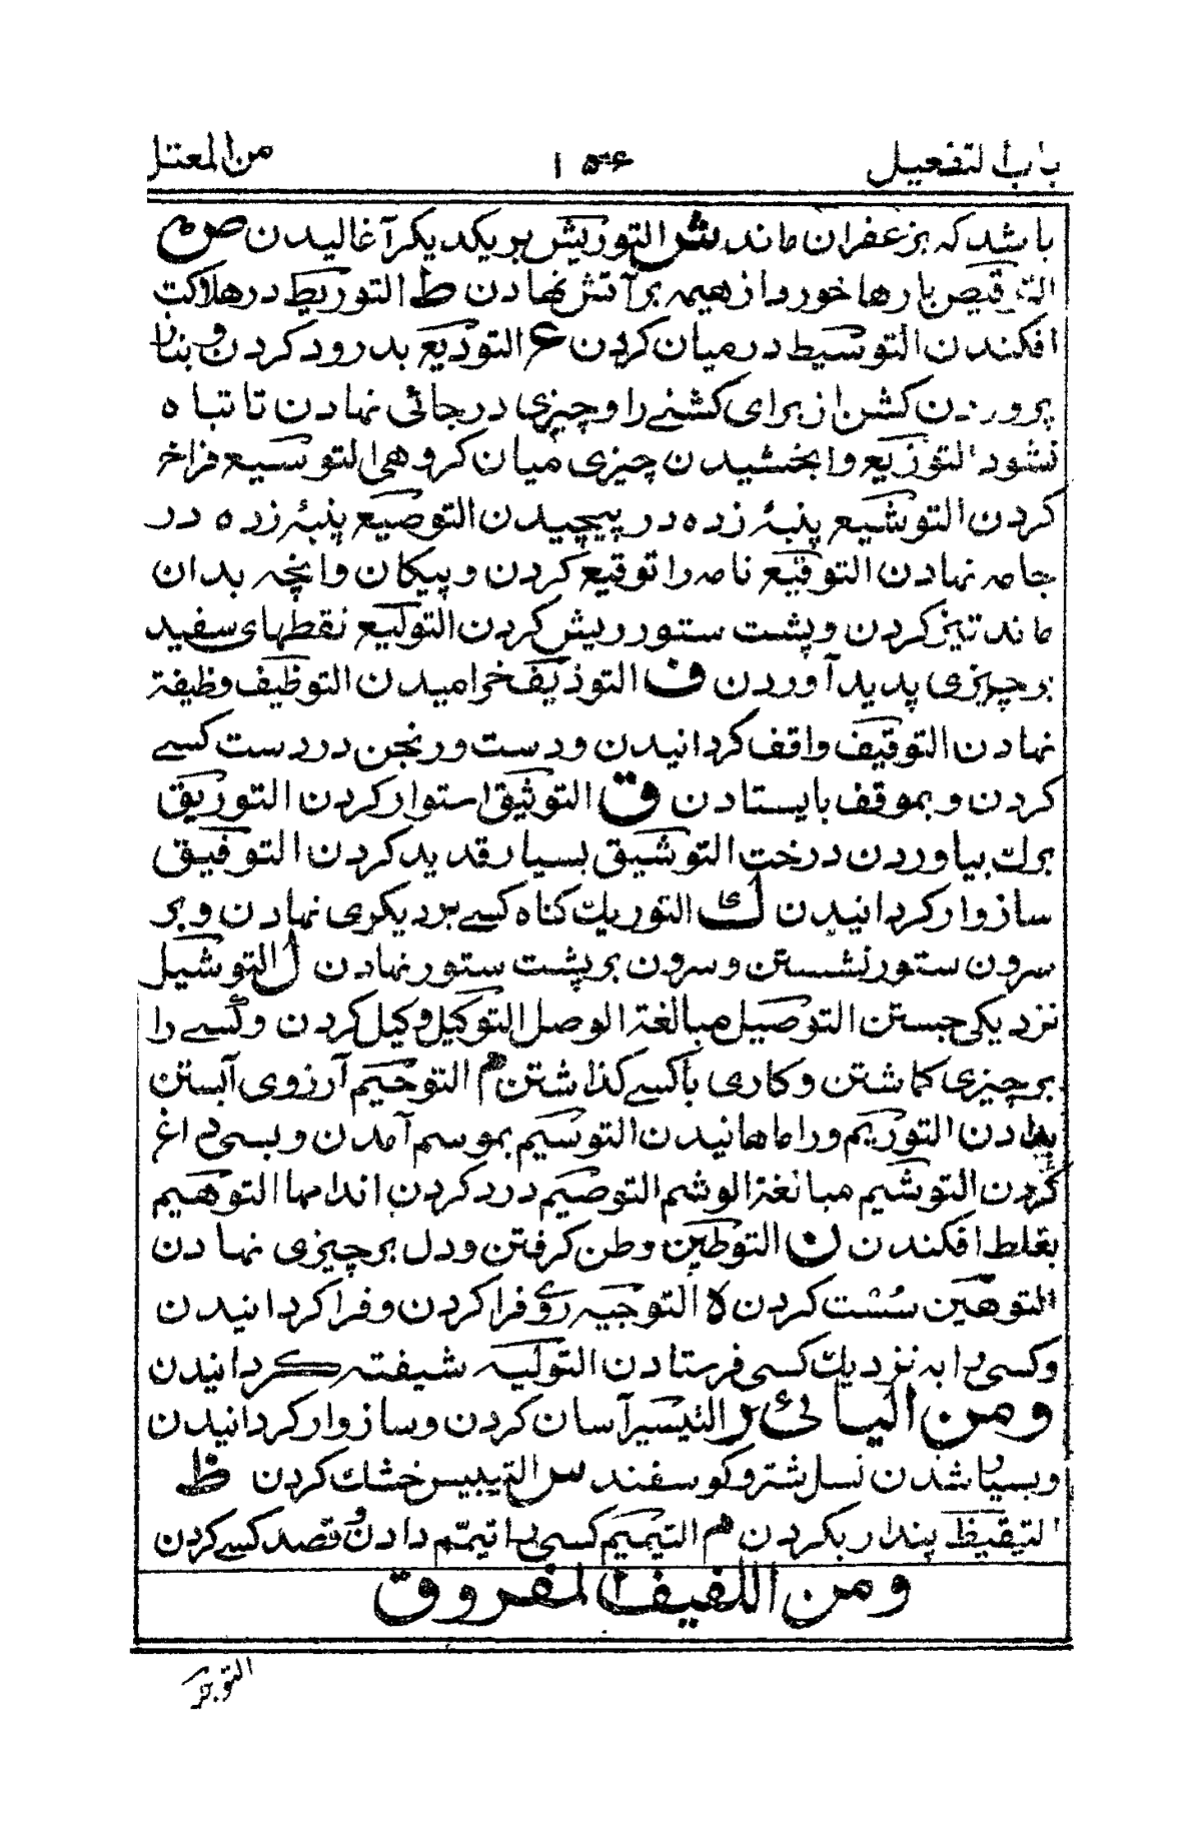 باب التفعيل ١٥۶ من المعتل
باشد که بزعفران ماند ش التوريش بر يکديکر آغاليدن ص
التوقيص پارها خورد از هيمه بر آتش نهادن ط التوريط در هلاکت
افکندن التوسيط در ميان کردن ع التوديع بدرود کردن و بناز
پروردن کشن از برای کشنے را و چيزی در جائی نهادن تا تباه
نشود التوزيع وابخشيدن چيزی ميان کروهی التوسيع فراخ
کردن التوشيع پنبۀ زده در پيچيدن التوصيع پنبۀ زده در
جامه نهادن التوقيع نامه را توقيع کردن و پيکان وانچه بدان
ماند تيز کردن و پشت ستور ريش کردن التوليع نقطهای سفيد
بر چيزی پديد آوردن ف التوذيف خراميدن التوظيف وظيفة
نهادن التوقيف واقف کردانيدن و دست ورنجن در دست کسے
کردن و بموقف بايستادن ق التوثيق استوار کردن التوريق
برك بياوردن درخت التوشيق بسيار قديد کردن التوفيق
سازوار کردانيدن ك التوريك کناه کسے بر ديکری نهادن و بر
سرون ستور نشستن و سرون بر پشت ستور نهادن ل التوشيل
نزديکی جستن التوصيل مبالغة الوصل التوکيل وکيل کردن و کسے را
بر چيزی کماشتن و کاری باکسے کذاشتن م التوحيم آرزوی آبستن
بدادن التوريم وراماهانيدن التوسيم بموسم آمدن و بسی داغ
کردن التوشيم مبالغة الوشم التوصيم درد کردن اندامها التوهيم
بغلط افکندن ن التوطين وطن کرفتن و دل بر چيزی نهادن
التوهين سست کردن ه التوجيه روی فرا کردن و فرا کردانيدن
و کسی را به نزديك کسی فرستادن التوليه شيفته کردانيدن
ومن اليائی ر التيسير آسان کردن و سازوار کردانيدن
و بسيار شدن نسل شتر و کوسفند س التيبيس خشك کردن ظ
التيقيظ پندار بکردن م التيميم کسی را تيمّم دادن و قصد کسے کردن
ومن اللفيف المفروق